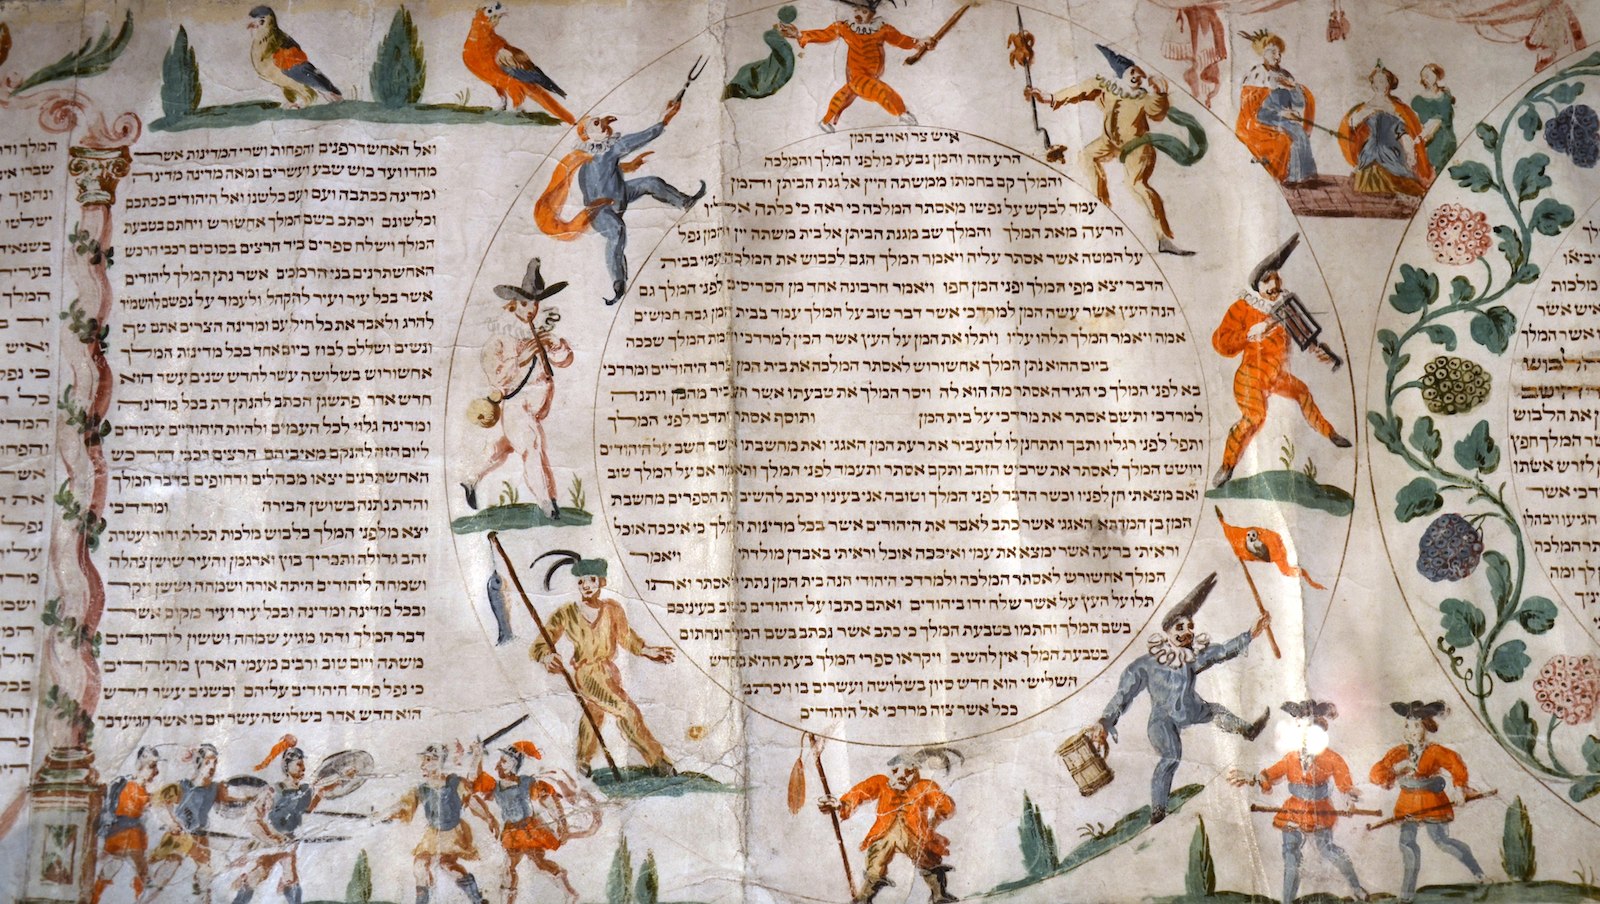 יביאו
מלכות
איש אשר
אשר המלך
את הלבוש
המלך חפץ
לזרש אשתו
אשר
הגיעו ויבהלו
המלכה
ומה
איש צר ואויב המן
הרע הזה והמן נבעת מלפני המלך והמלכה
והמלך קם בחמתו ממשתה היין אל גנת הביתן והמן
עמד לבקש על נפשו מאסתר המלכה כי ראה כי כלתה אליו
הרעה מאת המלך והמלך שב מגנת הביתן אל בית משתה היין והמן נפל
על המטה אשר אסתר עליה ויאמר המלך הגם לכבוש את המלכה עמי בבית
הדבר יצא מפי המלך ופני המן חפו ויאמר חרבונה אחד מן הסריסים לפני המלך גם
הנה העץ אשר עשה המן למרדכי אשר דבר טוב על המלך עמד בבית המן גבה חמשים
אמה ויאמר המלך תלהו עליו ויתלו את המן על העץ אשר הכין למרדכי וחמת המלך שככה
ביום ההוא נתן המלך אחשורוש לאסתר המלכה את בית המן צרר היהודיים ומרדכי
בא לפני המלך כי הגידה אסתר מה הוא לה ויסר המלך את טבעתו אשר העביר מהמן ויתנה
למרדכי ותשם אסתר את מרדכי על בית המן ותוסף אסתר ותדבר לפני המלך
ותפל לפני רגליו ותבך ותתחנן לו להעביר את רעת המן האגגי ואת מחשבתו אשר חשב על היהודים
ויושט המלך לאסתר את שרביט הזהב ותקם אסתר ותעמד לפני המלך ותאמר אם על המלך טוב
ואם מצאתי חן לפניו וכשר הדבר לפני המלך וטובה אני בעיניו יכתב להשיב את הספרים מחשבת
המן בן המדתא האגגי אשר כתב לאבד את היהודים אשר בכל מדינות המלך כי איככה אוכל
וראיתי ברעה אשר ימצא את עמי ואיככה אוכל וראיתי באבדן מולדתי ויאמר
המלך אחשורש לאסתר המלכה ולמרדכי היהודי הנה בית המן נתתי לאסתר ואתו
תלו על העץ על אשר שלח ידו ביהודים ואתם כתבו על היהודים כטוב בעיניכם
בשם המלך וחתמו בטבעת המלך כי כתב אשר נכתב בשם המלך ונחתום
בטבעת המלך אין להשיב ויקראו ספרי המלך בעת ההיא בחדש
השלישי הוא חדש סיון בשלושה ועשרים בו ויכתב
ככל אשר צוה מרדכי אל היהודים
ואל האחשדרפנים והפחות ושרי המדינות אשר
מהדו ועד כוש שבע ועשרים ומאה מדינה מדינה
ומדינה ככתבה ועם ועם כלשנו ואל היהודים ככתבם
וכלשונם ויכתב בשם המלך אחשורש ויחתם בטבעת
המלך וישלח ספרים ביד הרצים בסוסים רכבי הרכש
האחשתרנים בני הרמכים אשר נתן המלך ליהודים
אשר בכל עיר ועיר להקהל ולעמד על נפשם להשמיד
להרג ולאבד את כל חיל עם ומדינה הצרים אתם טף
ונשים ושללם לבוז ביום אחד בכל מדינות המלך
אחשורוש בשלושה עשר לחדש שנים עשר הוא
חדש אדר פתשגן הכתב להנתן דת בכל מדינה
ומדינה גלוי לכל העמים ולהיות היהודיים עתודים
ליום הזה להנקם מאיביהם הרצים רכבי הרכש
האחשתרנים יצאו מבהלים ודחופים בדבר המלך
והדת נתנה בשושן הבירה ומרדכי
יצא מלפני המלך בלבוש מלכות תכלת וחור ועטרת
זהב גדולה ותכריך בוץ וארגמן והעיר שושן צהלה
ושמחה ליהודים היתה אורה ושמחה וששן ויקר
ובכל מדינה ומדינה ובכל עיר ועיר מקום אשר
דבר המלך ודתו מגיע שמחה וששון ליהודים
משתה ויום טוב ורבים מעמי הארץ מתיהדים
כי נפל פחד היהודים עליהם ובשנים עשר חדש
הוא חדש אדר בשלושה עשר יום בו אשר הגיע דבר
המלך ודתו
שברו
ונהפוך
ישלטו
המלך
ואיש
כי נפל
כל
והפחות
אשר
את